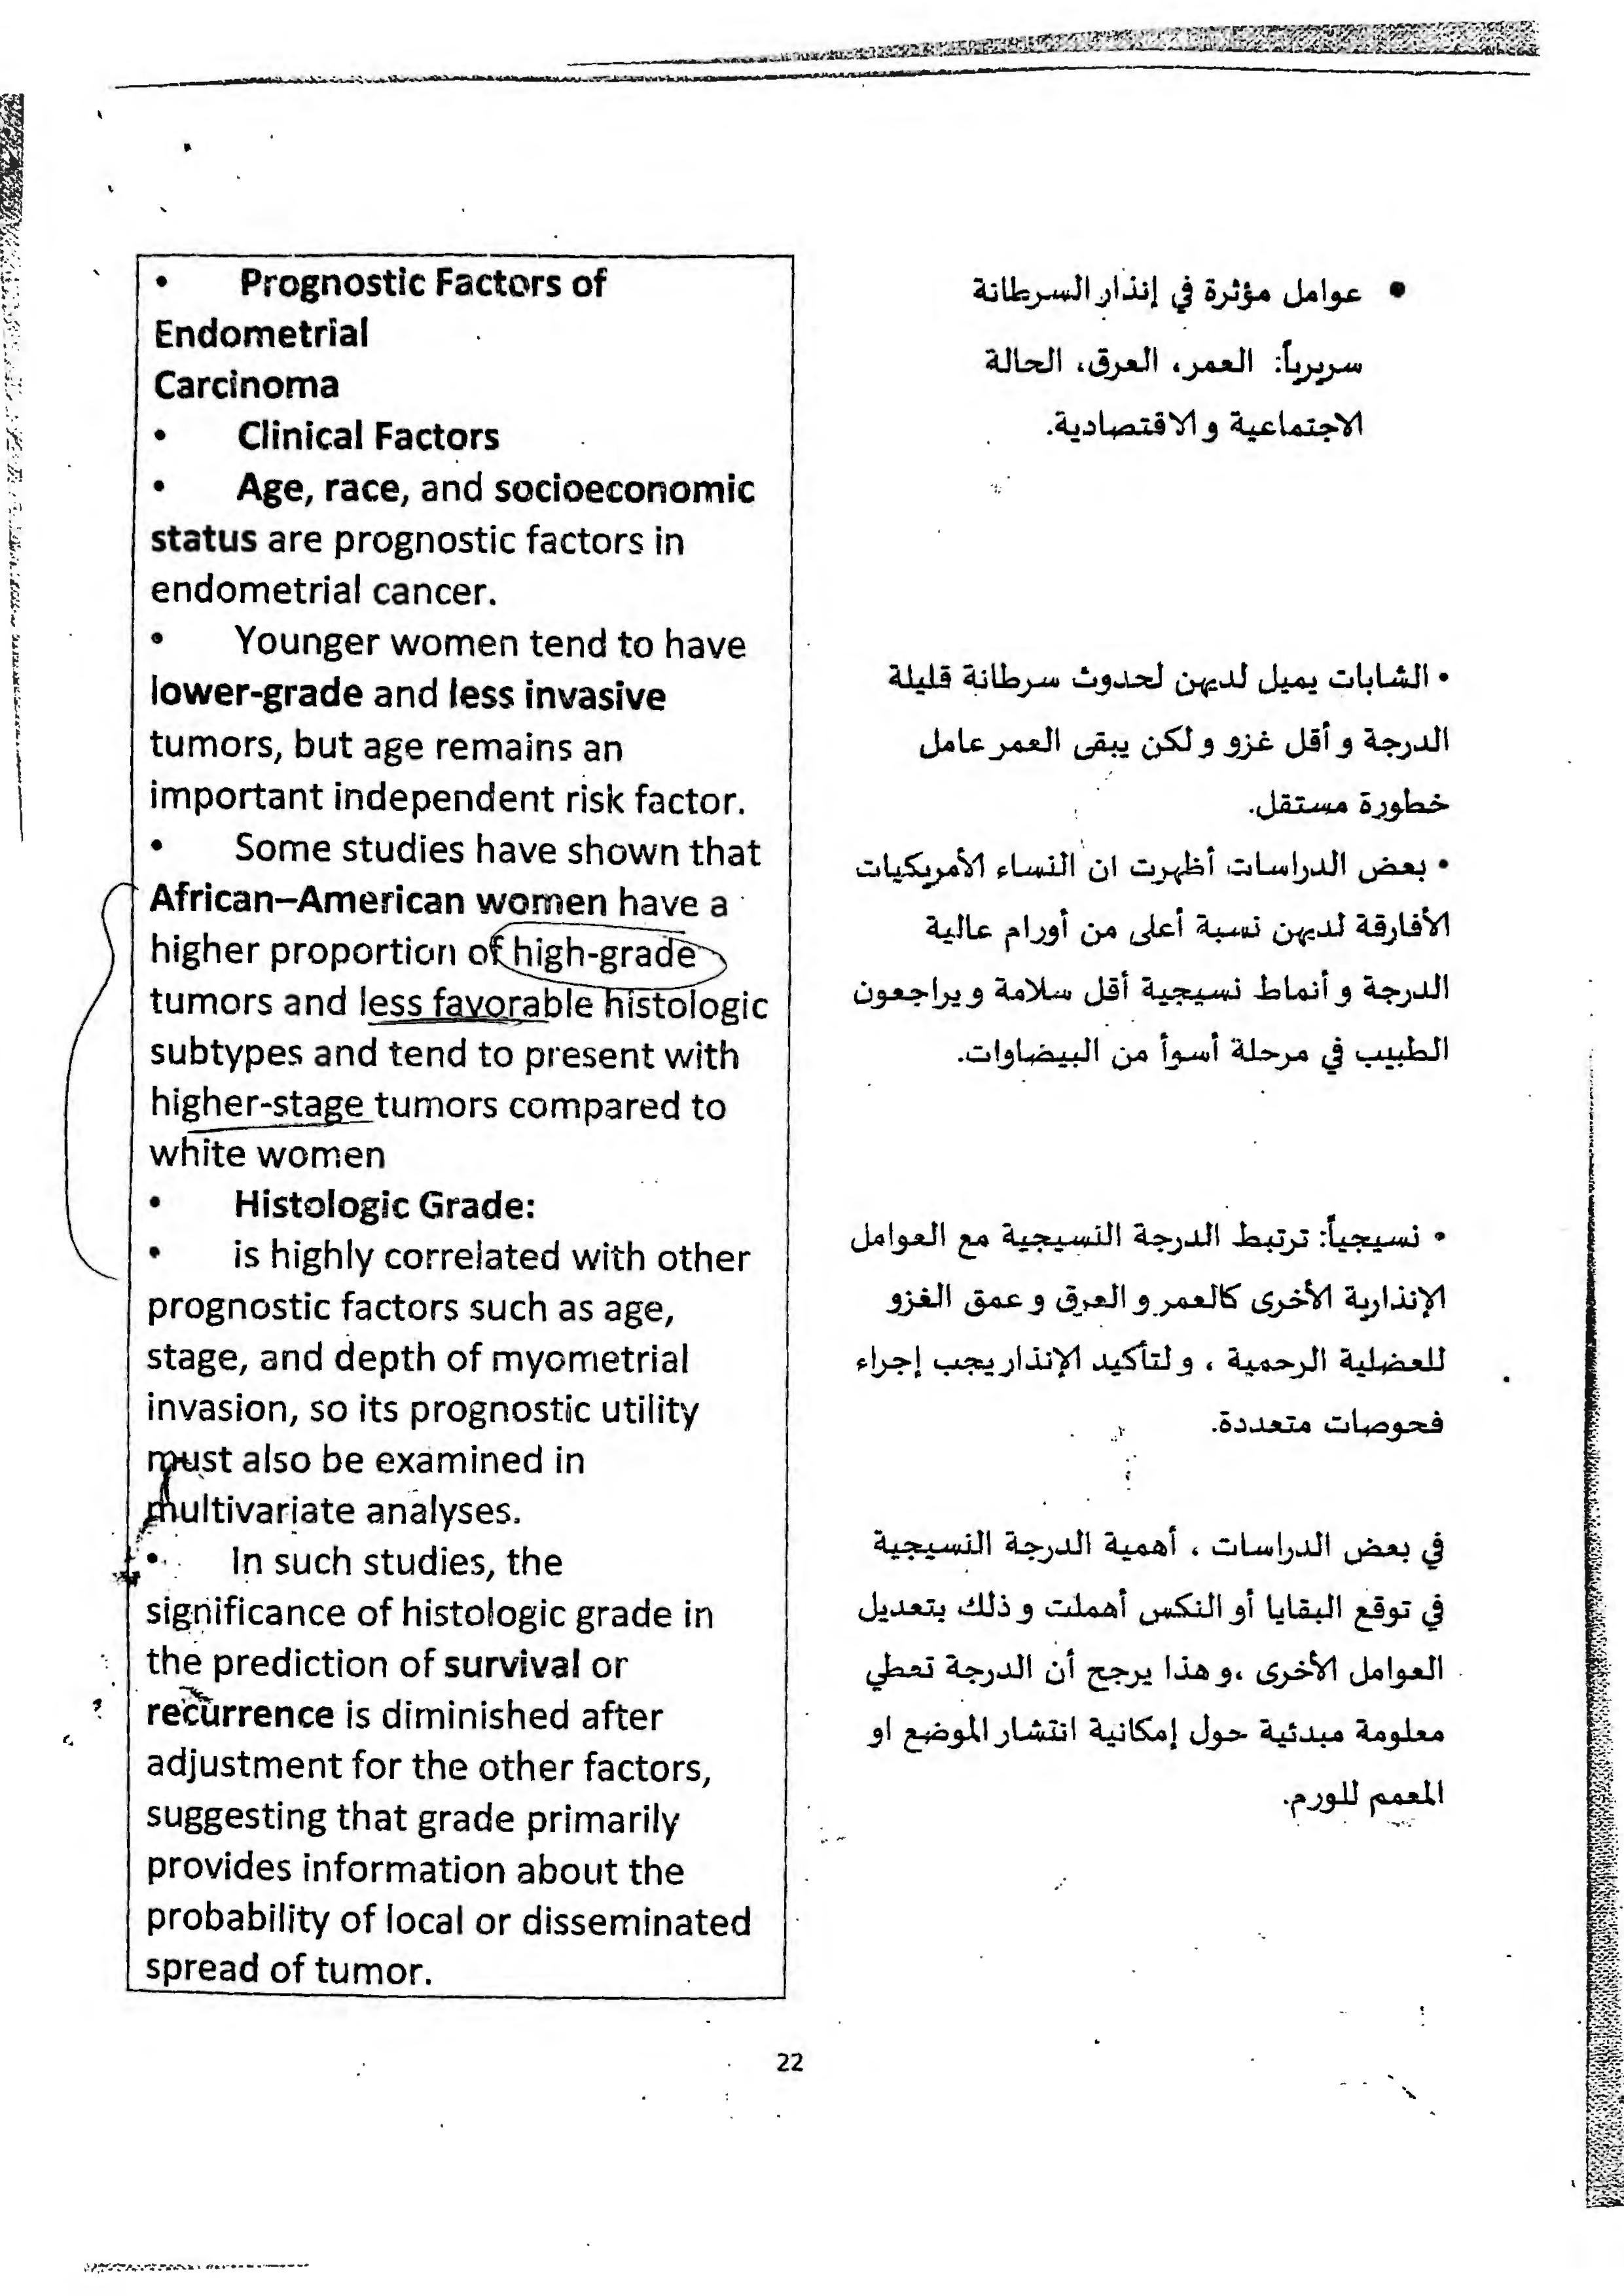 • Prognostic Factors of
Endometrial
Carcinoma
• Clinical Factors
• Age, race, and socioeconomic
status are prognostic factors in
endometrial cancer.
• Younger women tend to have
lower-grade and less invasive
tumors, but age remains an
important independent risk factor.
• Some studies have shown that
African–American women have a
higher proportion of high-grade
tumors and less favorable histologic
subtypes and tend to present with
higher-stage tumors compared to
white women
• Histologic Grade:
• is highly correlated with other
prognostic factors such as age,
stage, and depth of myometrial
invasion, so its prognostic utility
must also be examined in
multivariate analyses.
• In such studies, the
significance of histologic grade in
the prediction of survival or
recurrence is diminished after
adjustment for the other factors,
suggesting that grade primarily
provides information about the
probability of local or disseminated
spread of tumor.
• عوامل مؤثرة في إنذار السرطانة
سريرياً: العمر، العرق، الحالة
الاجتماعية و الاقتصادية.
• الشابات يميل لديهن لحدوث سرطانة قليلة
الدرجة و أقل غزو و لكن يبقى العمر عامل
خطورة مستقل.
• بعض الدراسات أظهرت ان النساء الأمريكيات
الأفارقة لديهن نسبة أعلى من أورام عالية
الدرجة و أنماط نسيجية أقل سلامة و يراجعون
الطبيب في مرحلة أسوأ من البيضاوات.
• نسيجياً: ترتبط الدرجة النسيجية مع العوامل
الإنذارية الأخرى كالعمر و العرق و عمق الغزو
للعضلية الرحمية ، و لتأكيد الإنذار يجب إجراء
فحوصات متعددة.
في بعض الدراسات ، أهمية الدرجة النسيجية
في توقع البقايا أو النكس أهملت و ذلك بتعديل
العوامل الأخرى ،و هذا يرجح أن الدرجة تعطي
معلومة مبدئية حول إمكانية انتشار الموضع او
المعمم للورم.
22